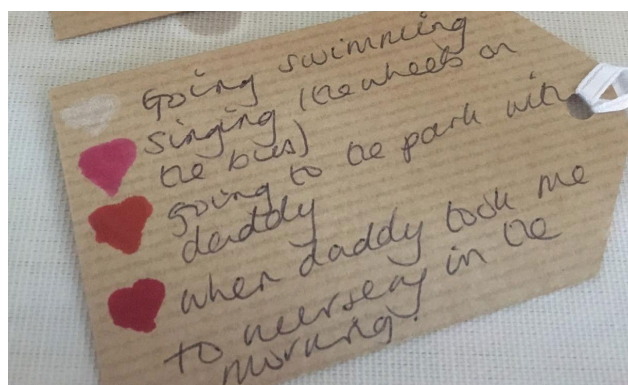 Going swimming
Singing (the wheels on
the bus)
going to the park with
daddy
when daddy took me
to nursery in the
morning!